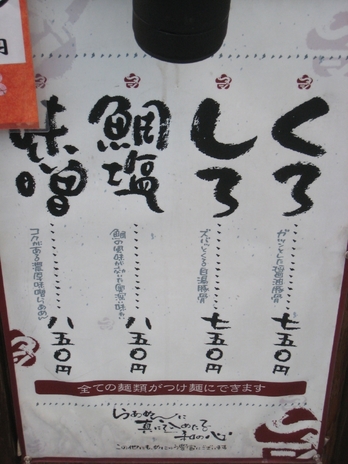 くろ
ガツンとした醤油豚骨
七五〇円
しろ
ズバいくろ白湯豚骨
七五〇円
鯛塩
鯛の風味がきいた奥深い味わい
八五〇円
味噌
コクがある濃厚味噌らぁめん
八五〇円
全ての麺類がつけ麺にできます
らぁめんに
真に込めたる
和の心
円